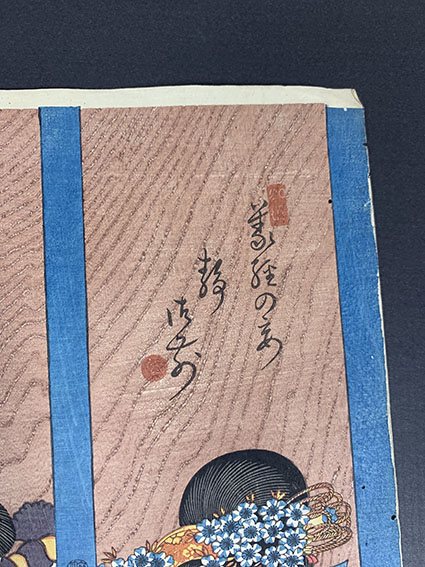 義經の妾
静
御前